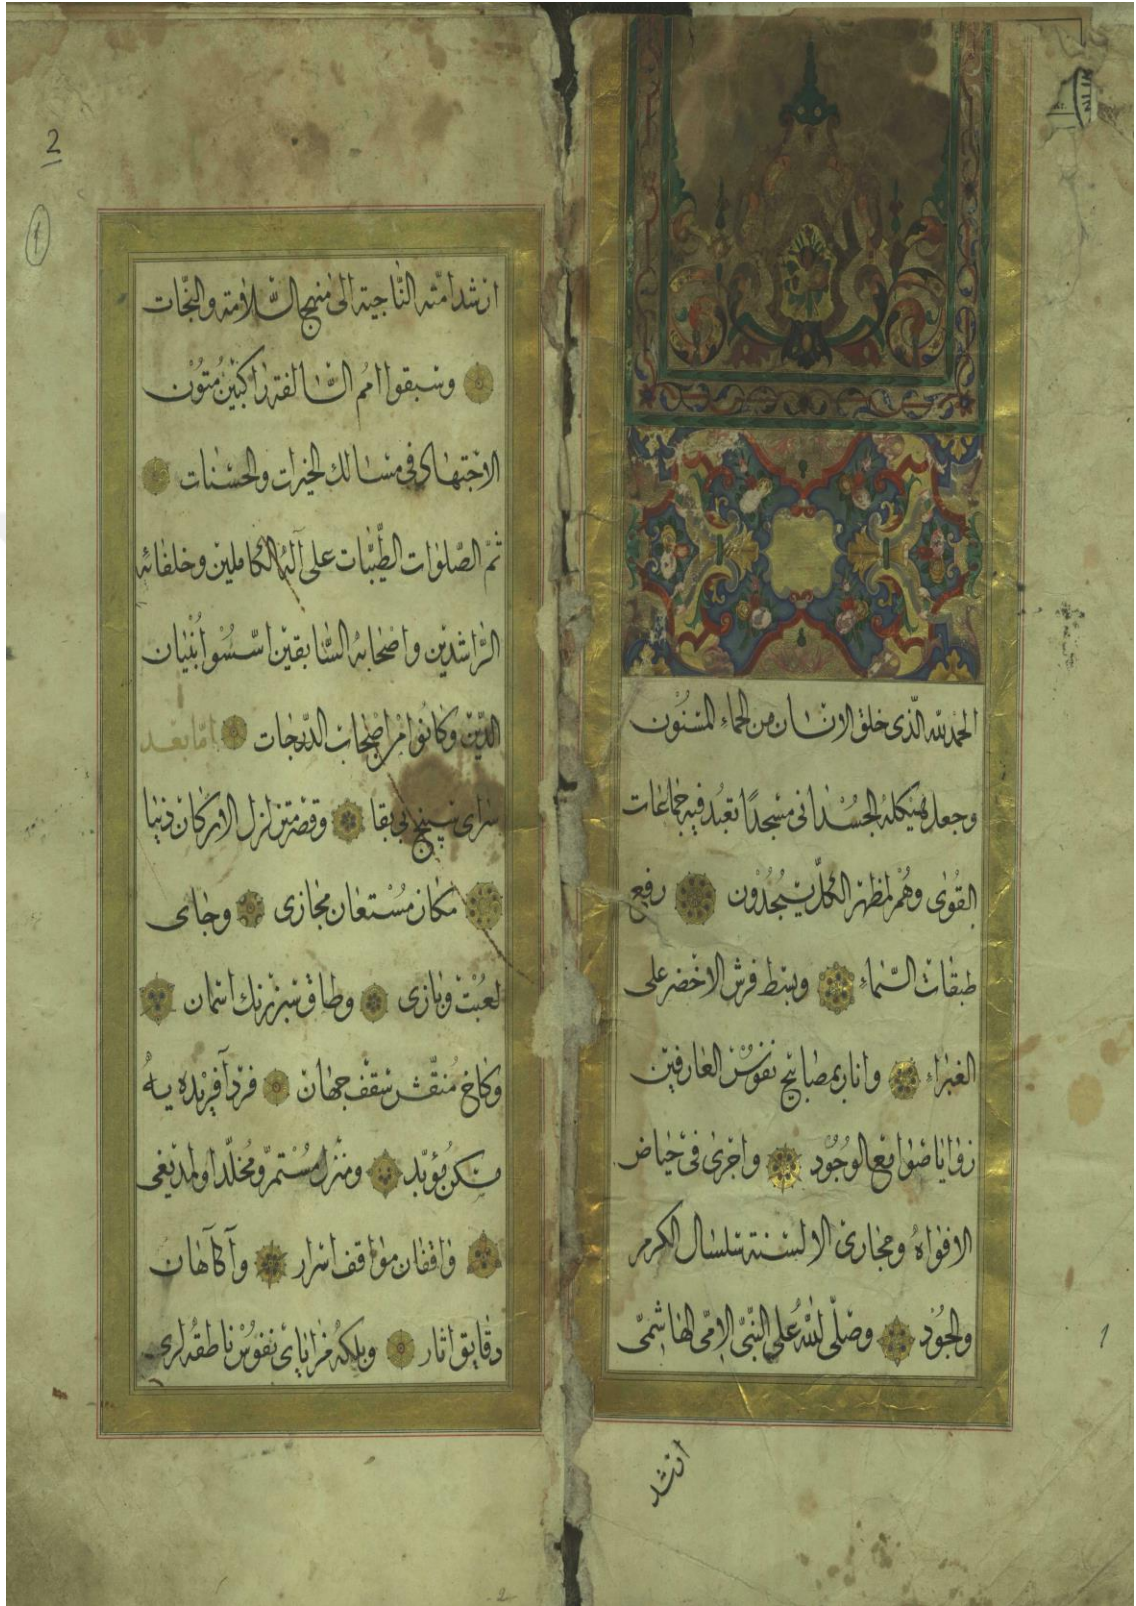 الحمد لله الذی خلق الانسان من الحماء المسنون
وجعل هیکله الجسدانی مسجدًا تعبد فیه جماعات
القوی وهم لمظهر الکل یسجدون رفع
طبقات السماء وبسط فرش الاخضر علی
الغبراء وانار بمصابیح نفوس العارفین
زوایا صوامع الوجود واجری فی حیاض
الافواه ومجاری الالسنة سلسال الکرم
والجود وصلی الله علی النبی الامی الهاشمی
ارشد
1
2
ارشد امته الناجیة الی منهج السلامة والنجات
وسبقوا امم السالفة راکبین متون
الاجتهاد فی مسالك الخیرات والحسنات
ثم الصلوات الطیبات علی آله الکاملین وخلفائه
الراشدین واصحابه السابقین اسسوا بنیان
الدین وکانوا من اصحاب الدرجات اما بعد
سرای سپنج بی بقا وقصر متزلزل الارکان دنیا
مکان مستعان مجازی وجای
لعبت وبازی وطاق سبز رنك اسمان
وکاخ منقش سقف جهان فرد آفریده یه
مسکن مؤبد ومنزل مستمر ومخلد اولمدیغی
واقفان مواقف اسرار وآکاهان
دقایق اثار وبلکه مرایای نفوس ناطقه لری
2